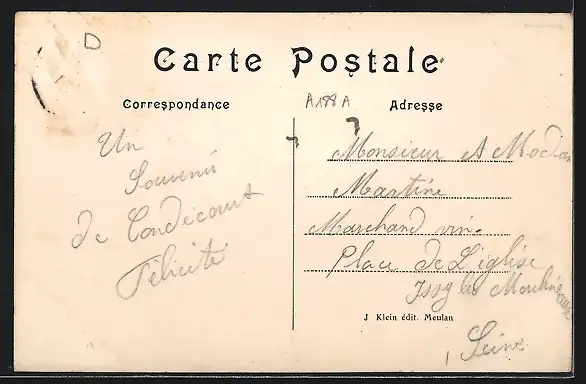 D
Carte Postale
Correspondance
A188A
Adresse
Un
Souvenir
de Condécourt
Félicite
Monsieur A
Martine
Marchand vin.
Place de L'iglise
Issy les Moulineaux
Seine
J Klein édit. Meulan